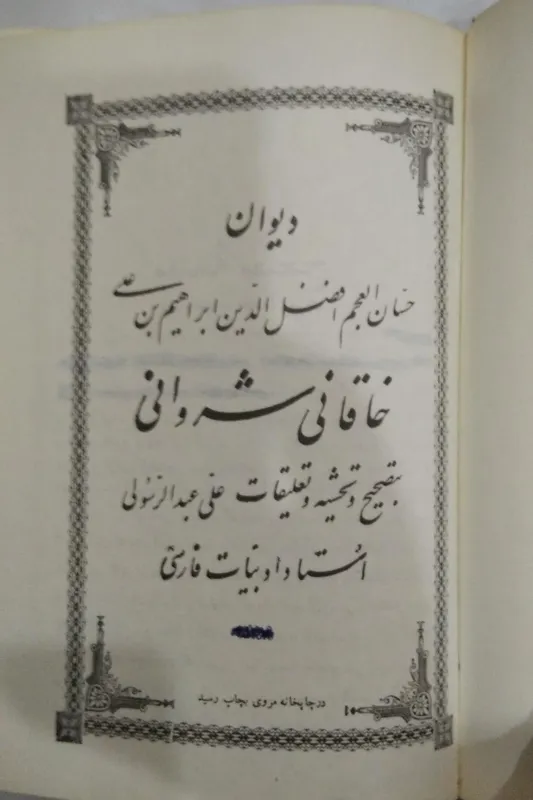 دیوان
حسان العجم افضل الدین ابراهیم بن علی
خاقانی شروانی
بتصحیح و تحشیه و تعلیقات علی عبدالرسولی
استاد ادبیات فارسی
در چاپخانه مروی بچاپ رسید